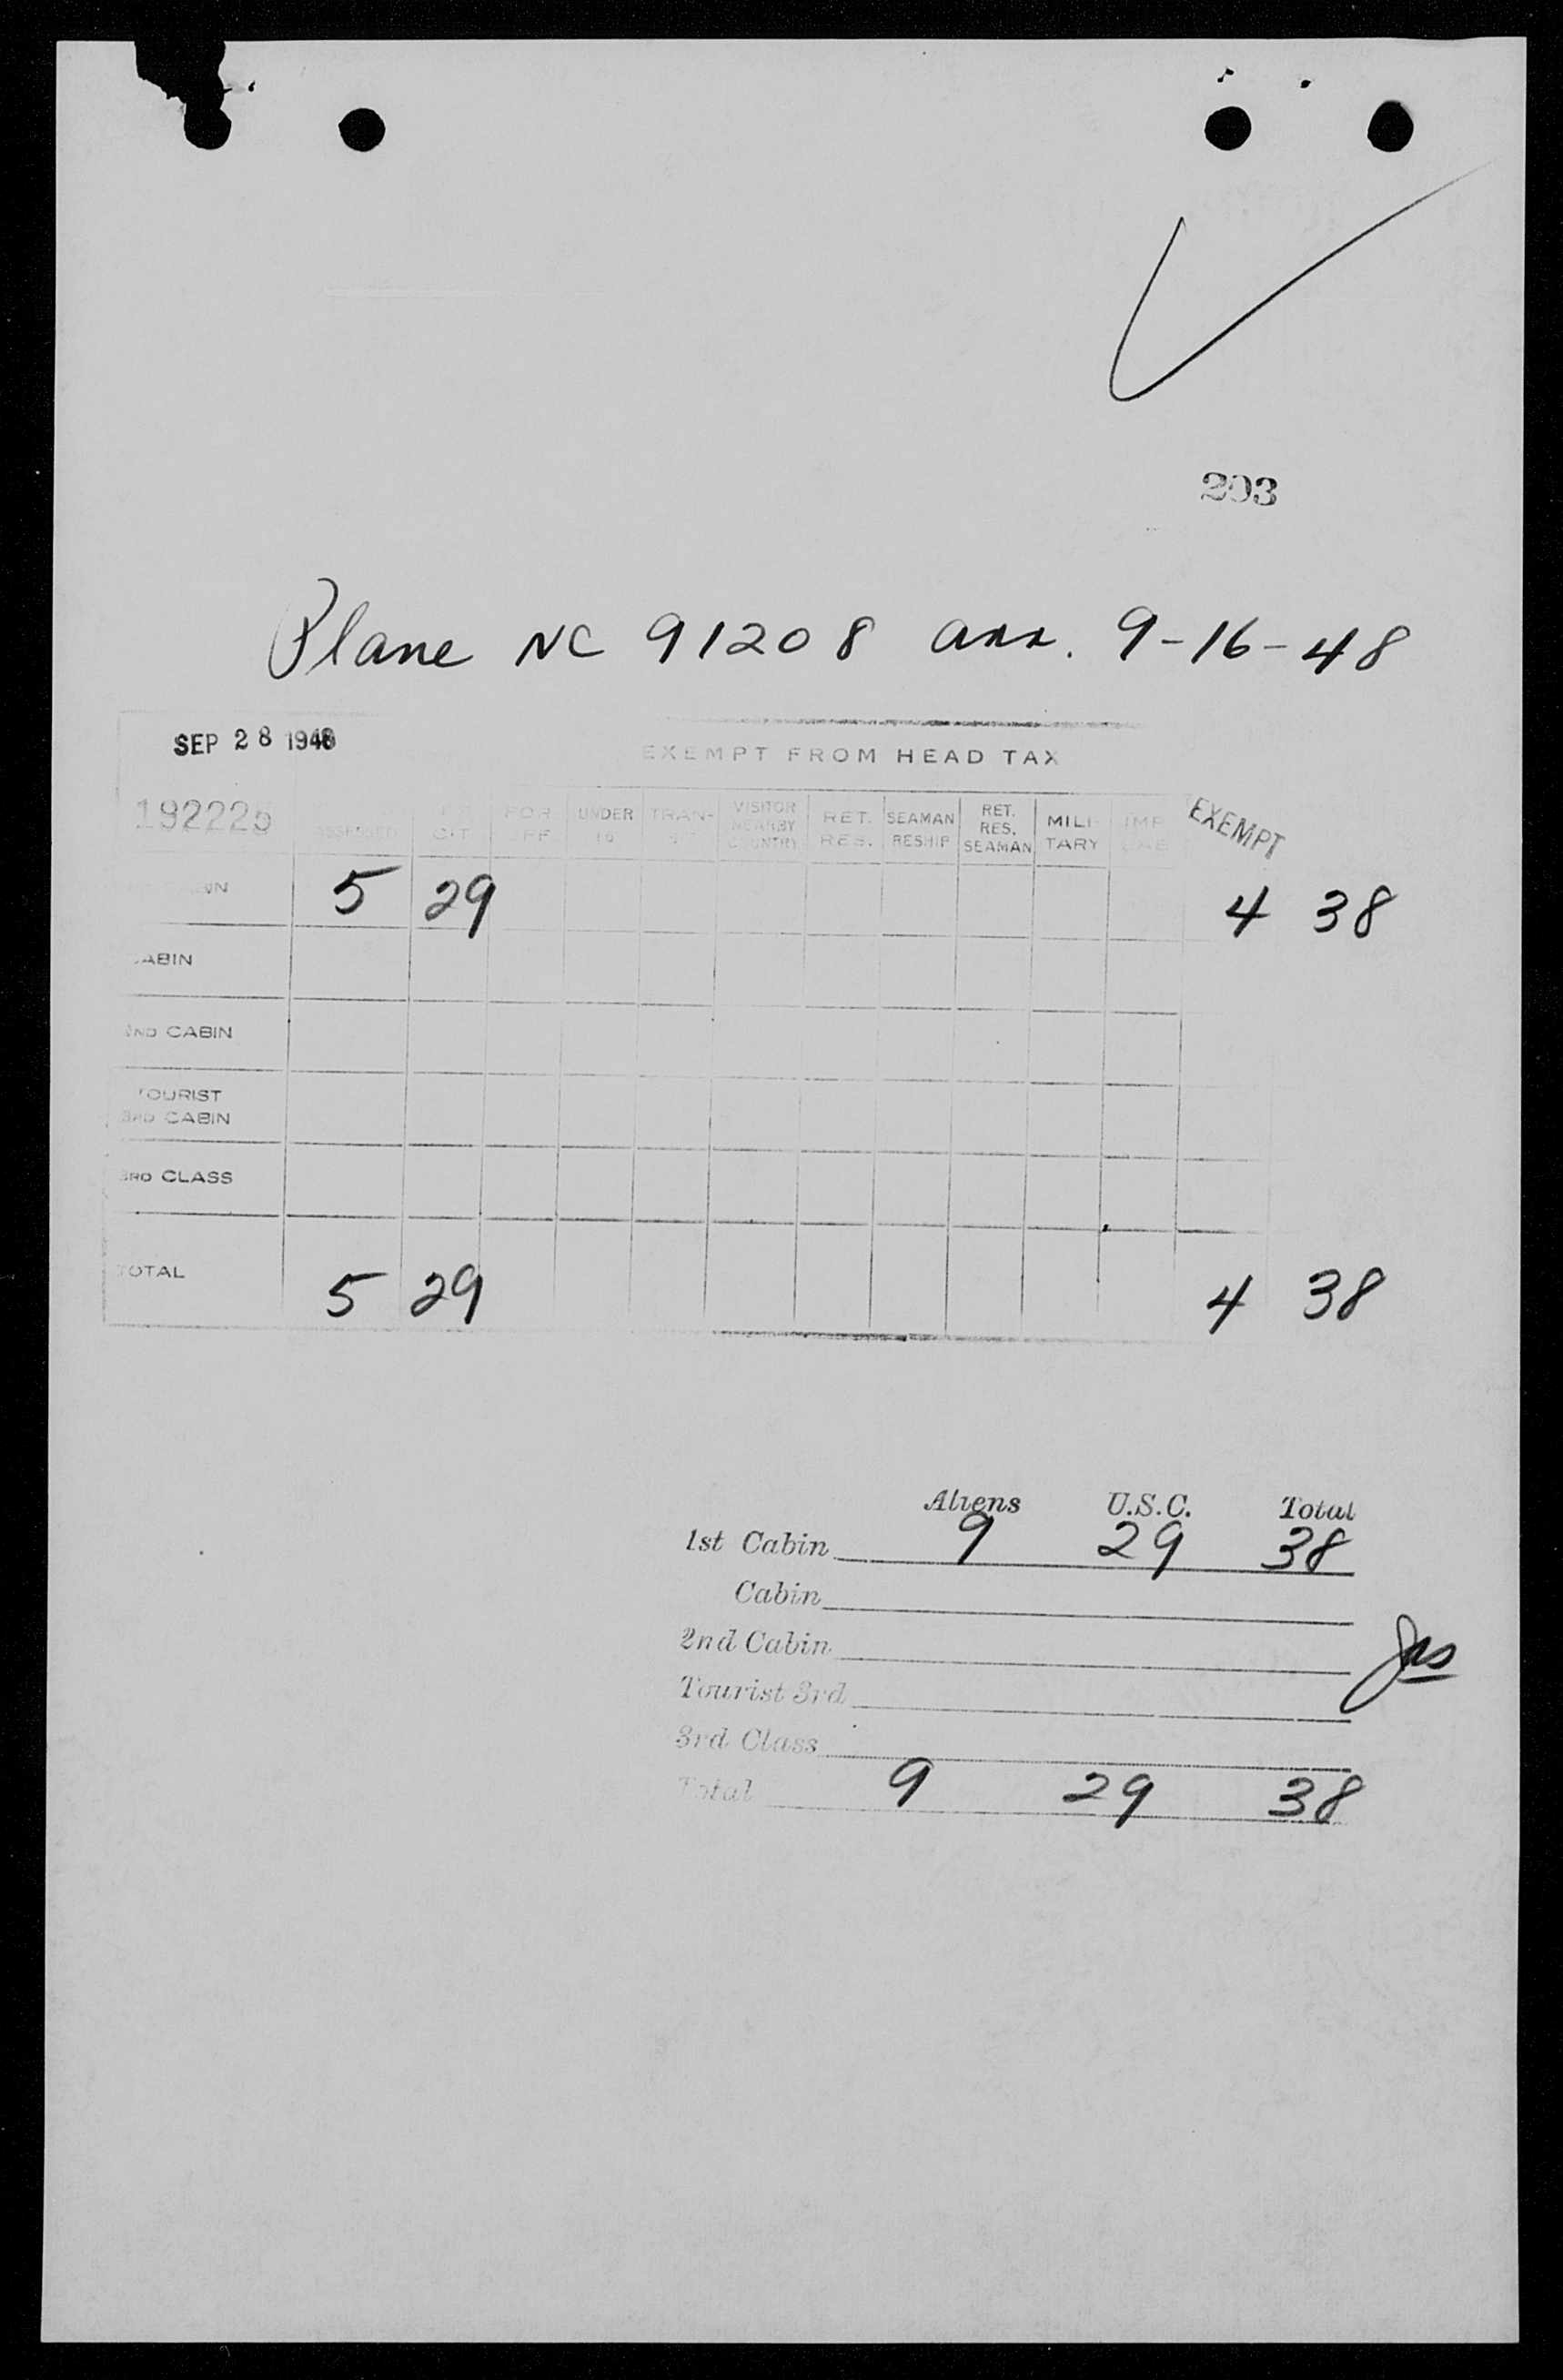 203
Plane NC 91208 arr. 9-16-48
SEP 28 1948
EXEMPT FROM HEAD TAX
192225
ASSESSED CIT FOR UNDER 16 TRAN- VISITOR NEARBY COUNTRY RET. RES. SEAMAN RESHIP RET. RES. SEAMAN MILI TARY EXEMPT
5 29 4 38
CABIN
2ND CABIN
TOURIST
3RD CABIN
3RD CLASS
TOTAL 5 29 4 38
Aliens U.S.C. Total
1st Cabin 9 29 38
Cabin
2nd Cabin
Tourist 3rd
3rd Class
Total 9 29 38